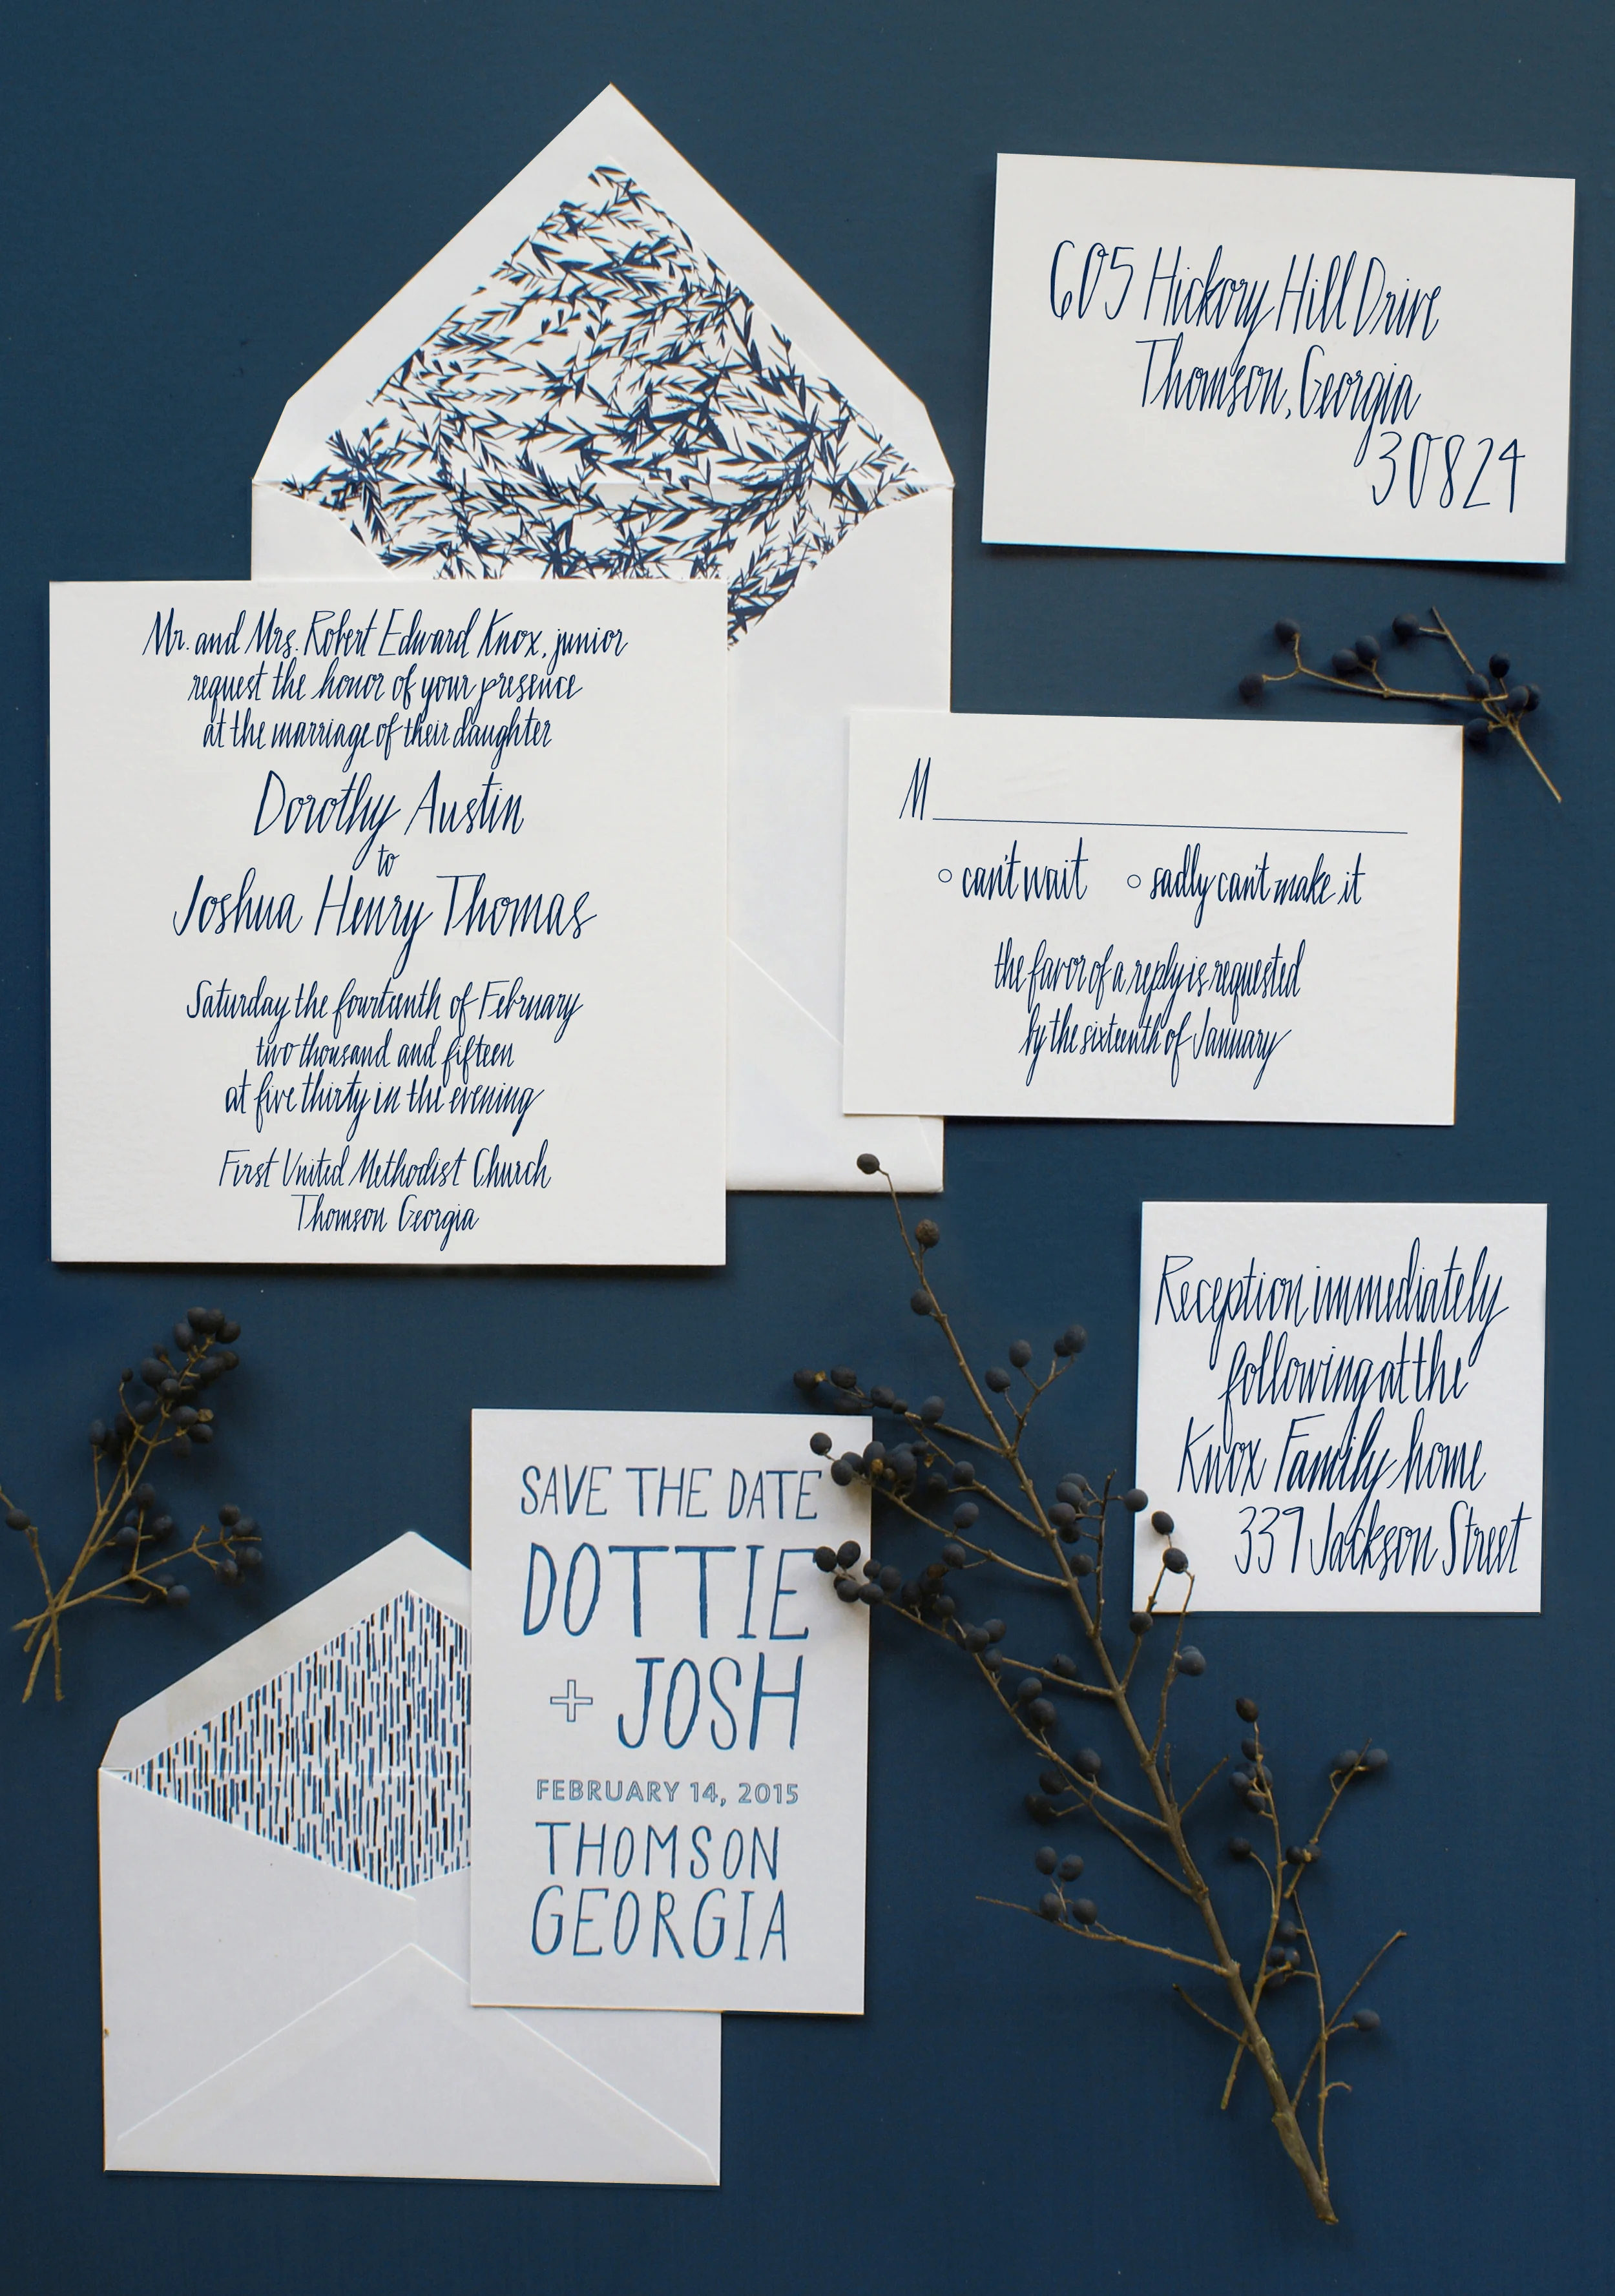 605 Hickory Hill Drive
Thomson, Georgia
30824
Mr. and Mrs. Robert Edward Knox, junior
request the honor of your presence
at the marriage of their daughter
Dorothy Austin
to
Joshua Henry Thomas
Saturday the fourteenth of February
two thousand and fifteen
at five thirty in the evening
First United Methodist Church
Thomson Georgia
M
can't wait sadly can't make it
the favor of a reply is requested
by the sixteenth of January
Reception immediately
following at the
Knox Family home
339 Jackson Street
SAVE THE DATE
DOTTIE
+ JOSH
FEBRUARY 14, 2015
THOMSON
GEORGIA